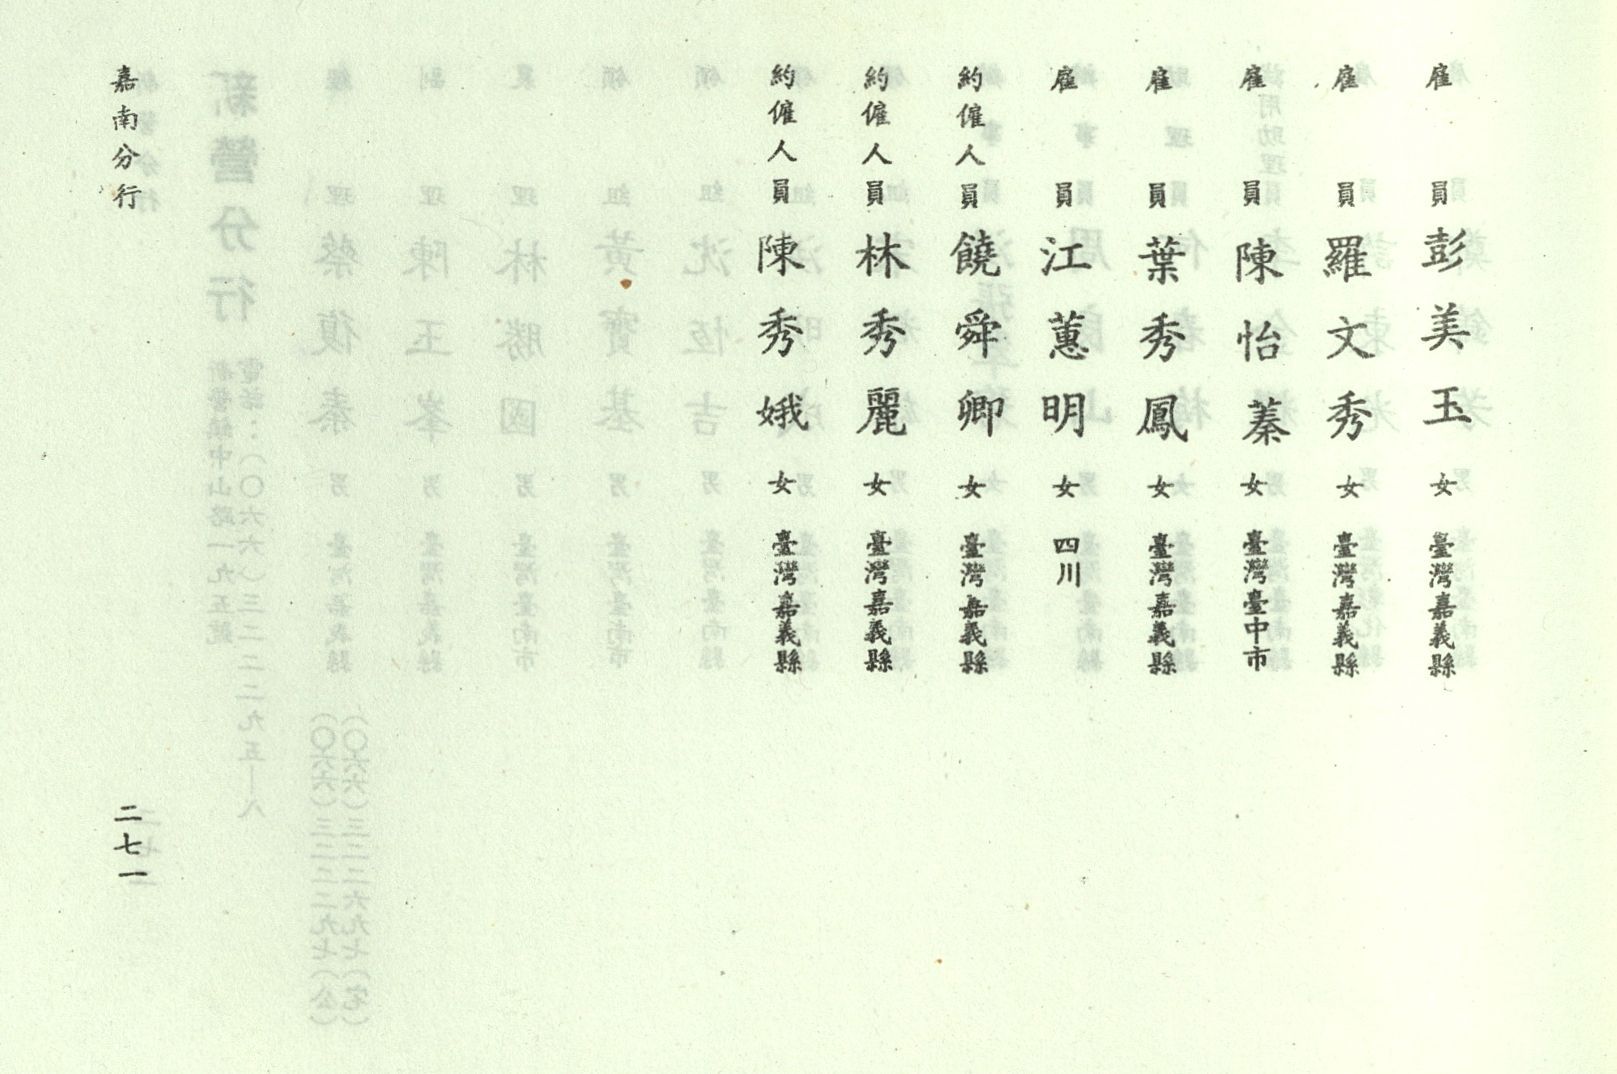 雇員彭美玉女臺灣嘉義縣
雇員羅文秀女臺灣嘉義縣
雇員陳怡蓁女臺灣臺中市
雇員葉秀鳳女臺灣嘉義縣
雇員江蕙明女四川
約僱人員饒舜卿女臺灣嘉義縣
約僱人員林秀麗女臺灣嘉義縣
約僱人員陳秀娥女臺灣嘉義縣
嘉南分行
二七一